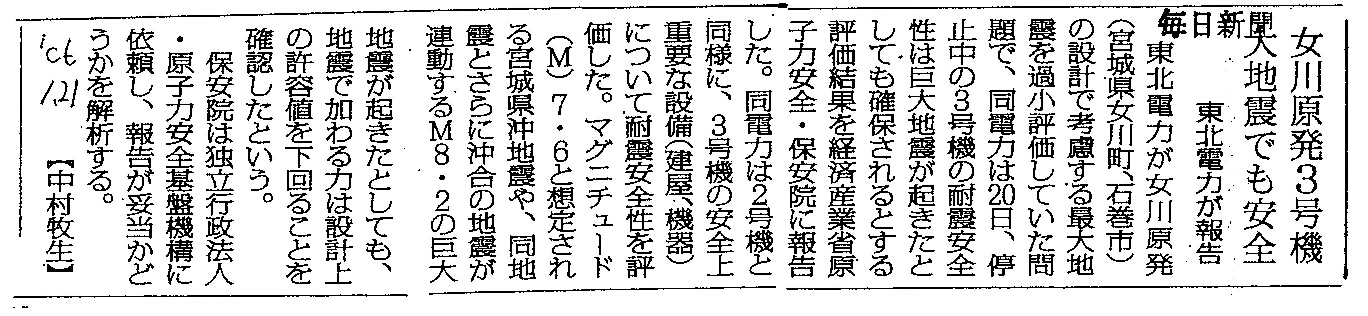 女川原発3号機
大地震でも安全
東北電力が報告
毎日新聞
東北電力が女川原発
（宮城県女川町、石巻市）
の設計で考慮する最大地
震を過小評価していた問
題で、同電力は20日、停
止中の3号機の耐震安全
性は巨大地震が起きたと
しても確保されるとする
評価結果を経済産業省原
子力安全・保安院に報告
した。同電力は2号機と
同様に、3号機の安全上
重要な設備（建屋、機器）
について耐震安全性を評
価した。マグニチュード
（M）7・6と想定され
る宮城県沖地震や、同地
震とさらに沖合の地震が
連動するM8・2の巨大
地震が起きたとしても、
地震で加わる力は設計上
の許容値を下回ることを
確認したという。
保安院は独立行政法人
・原子力安全基盤機構に
依頼し、報告が妥当かど
うかを解析する。
【中村牧生】
1.21